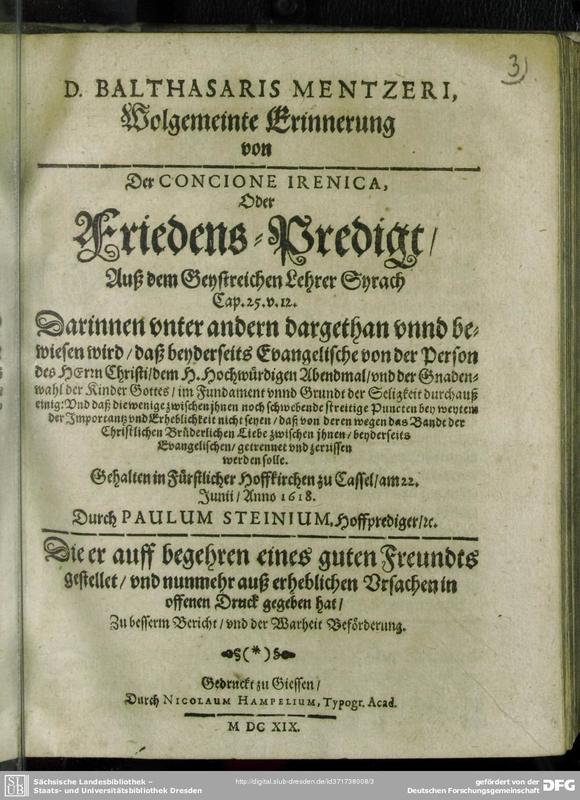 3)
D. BALTHASARIS MENTZERI,
Wolgemeinte Erinnerung
von
Der CONCIONE IRENICA,
Oder
Friedens-Predigt/
Auß dem Geystreichen Lehrer Syrach
Cap. 25. v. 12.
Darinnen vnter andern dargethan vnnd be-
wiesen wird/ daß beyderseits Evangelische von der Person
des HErrn Christi/ dem H. Hochwürdigen Abendmal/ vnd der Gnaden-
wahl der Kinder Gottes/ im Fundament vnnd Grundt der Seligkeit durchauß
einig: Vnd daß die wenige zwischen jhnen noch schwebende streitige Puncten bey weytem
der Importantz vnd Erheblichkeit nicht seyen/ daß von deren wegen das Bandt der
Christlichen Brüderlichen Liebe zwischen jhnen/ beyderseits
Evangelischen/ getrennet vnd zerissen
werden solle.
Gehalten in Fürstlicher Hoffkirchen zu Cassel/ am 22.
Junii/ Anno 1618.
Durch PAULUM STEINIUM, Hoffprediger/ ꝛc.
Die er auff begehren eines guten Freundts
gestellet/ vnd nunmehr auß erheblichen Vrsachen in
offenen Druck gegeben hat/
Zu besserm Bericht/ vnd der Warheit Beförderung.
(*)
Gedruckt zu Giessen/
Durch NICOLAUM HAMPELIUM, Typogr. Acad.
M DC XIX.
SLUB
Sächsische Landesbibliothek –
Staats- und Universitätsbibliothek Dresden
http://digital.slub-dresden.de/id371738008/3
gefördert von der
Deutschen Forschungsgemeinschaft
DFG